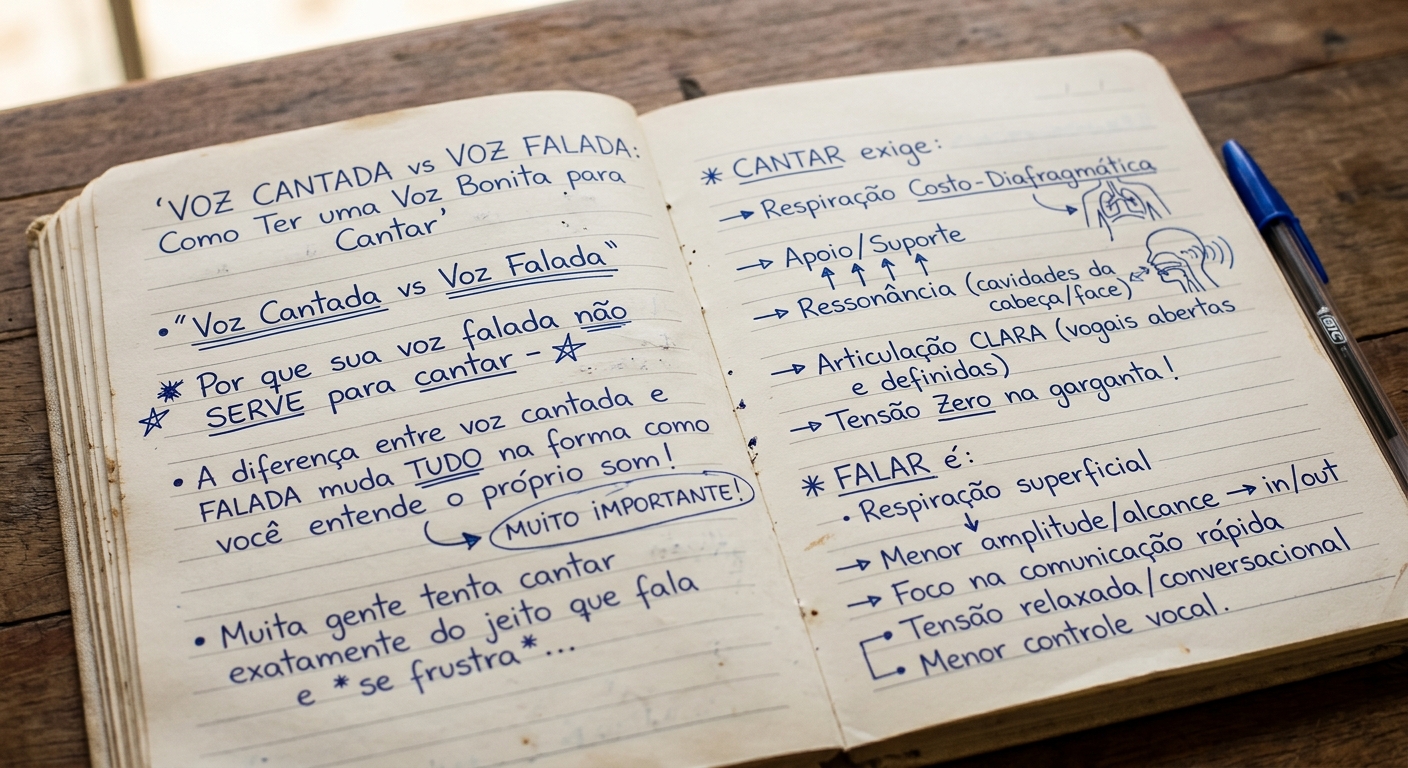 'VOZ CANTADA vs VOZ FALADA:
Como Ter uma Voz Bonita para
Cantar'
• "Voz Cantada vs Voz Falada"
* Por que sua voz falada não
SERVE para cantar -
• A diferença entre voz cantada e
FALADA muda TUDO na forma como
você entende o próprio som!
MUITO IMPORTANTE!
• Muita gente tenta cantar
exatamente do jeito que fala
e *se frustra*...
* CANTAR exige:
→ Respiração Costo-Diafragmática
→ Apoio/Suporte
→ Ressonância (cavidades da
cabeça/face)
→ Articulação CLARA (vogais abertas
e definidas)
→ Tensão Zero na garganta!
* FALAR é:
• Respiração superficial
→ Menor amplitude/alcance → in/out
→ Foco na comunicação rápida
• Tensão relaxada/conversacional
• Menor controle vocal.
BIC